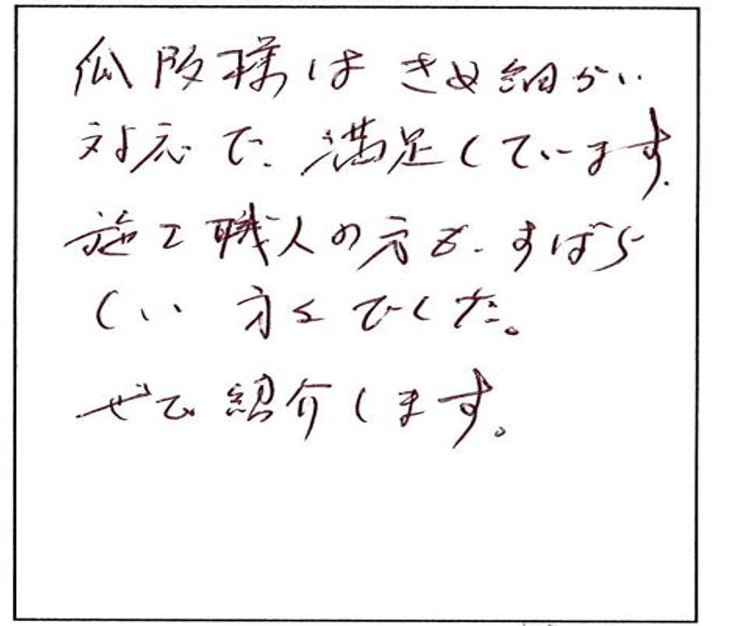 瓜阪様は きめ細かい
対応で、満足しています。
施工職人の方も、すばら
しい 方々でした。
ぜひ 紹介します。